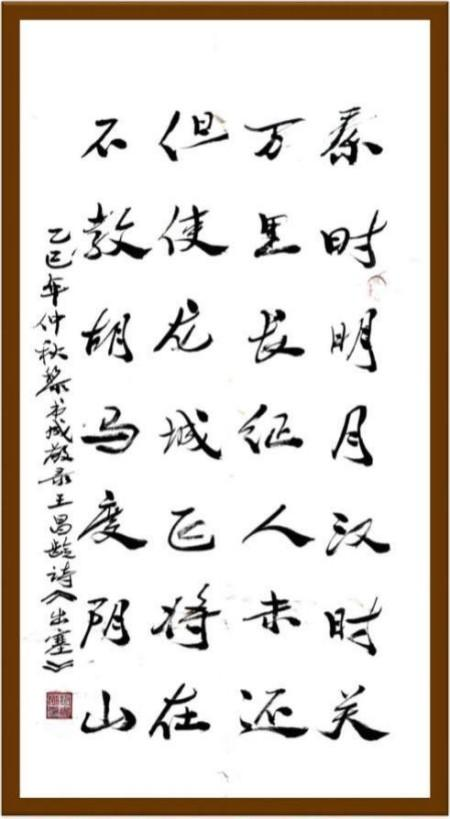 秦时明月汉时关
万里长征人未还
但使龙城飞将在
不教胡马度阴山
乙巳年仲秋黎书成敬录王昌龄诗《出塞》